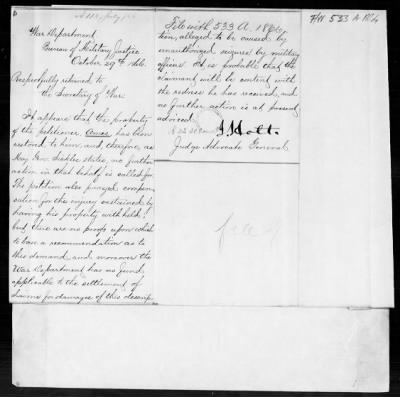 War Department
Bureau of Military Justice
October 29th 1866.
Respectfully returned to
the Secretary of War.
It appears that the property
of the petitioner, has been
restored to him, and therefore, as
Maj. Gen. Sickles states, no further
action in that behalf is called for.
The petition also prayed compen-
sation for the injury sustained by
having his property withheld;
but there are no proofs upon which
to base a recommendation as to
this demand and moreover the
War Department has no fund
applicable to the settlement of
claims for damages of this descrip-
File with 533 A. 1866
tion, alleged to be caused by
unauthorized seizures by military
officers. It is probable that the
claimant will be content with
the redress he has received, and
no further action is at present
advised.
J. Holt.
Judge Advocate General
file
533 A